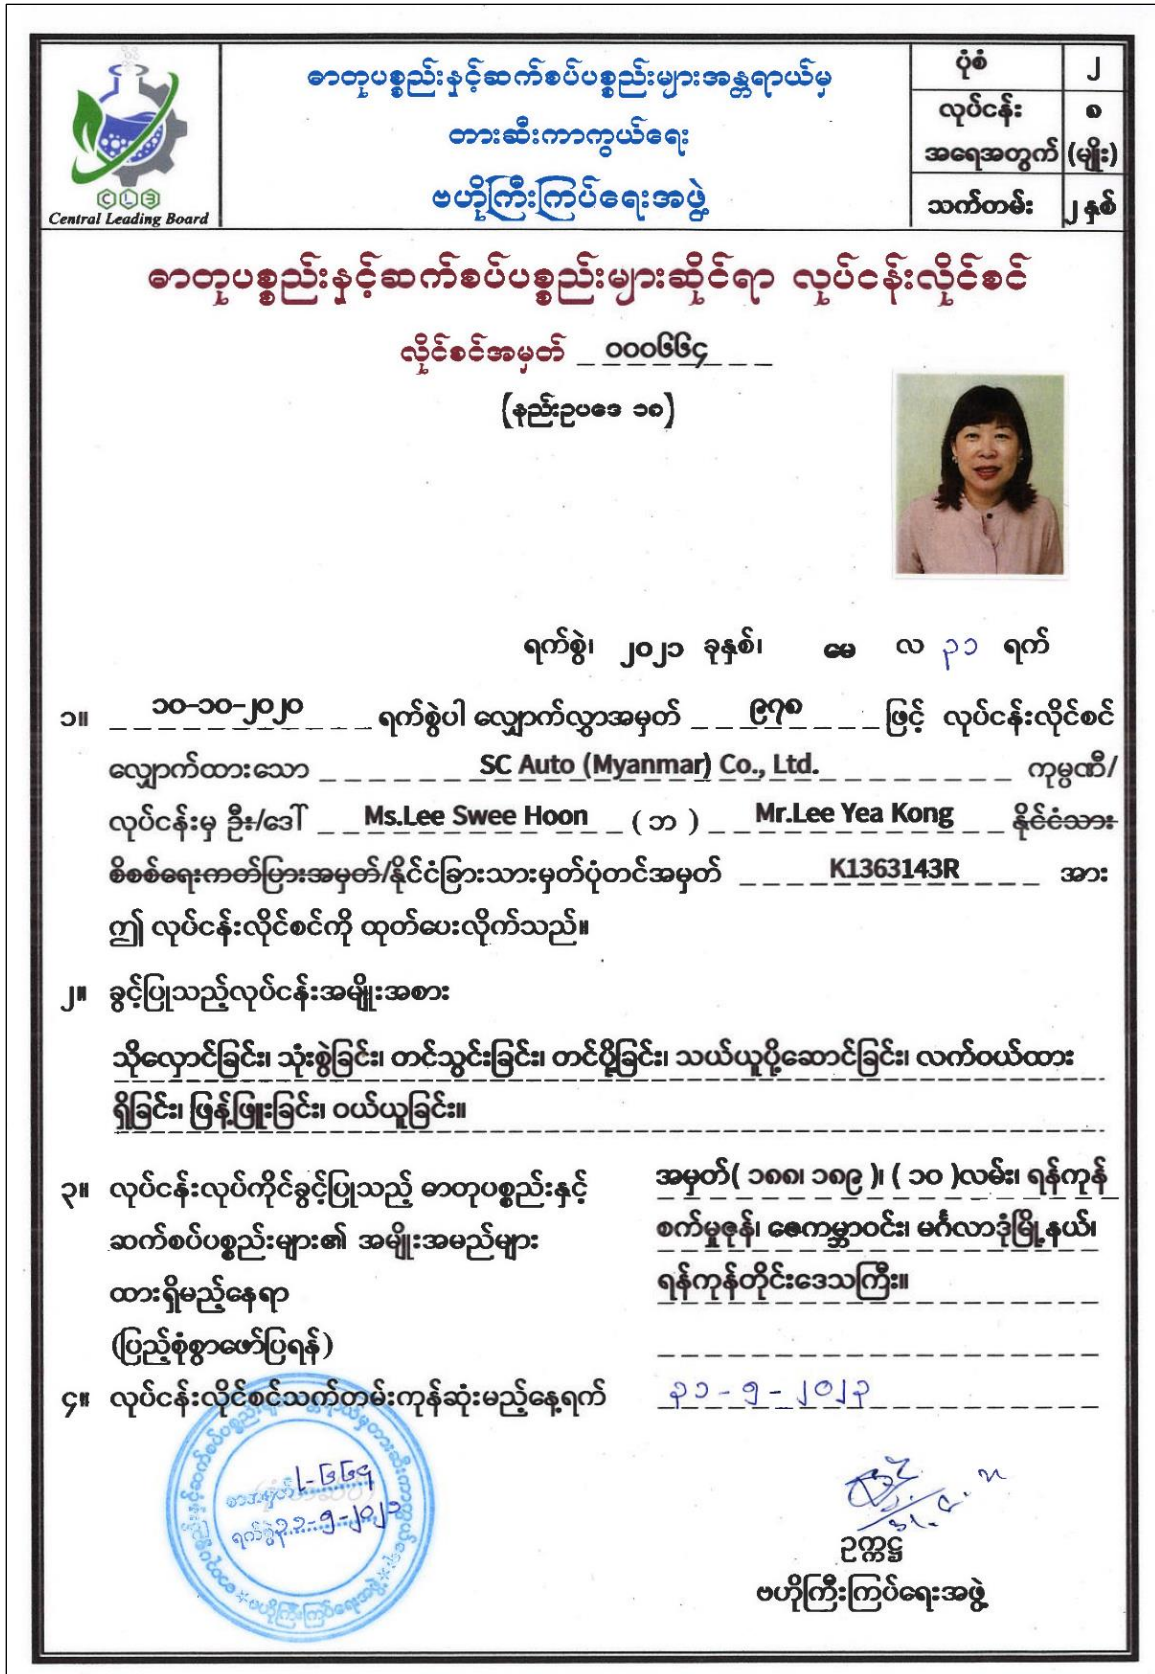 CLB
Central Leading Board
ဓာတုပစ္စည်းနှင့်ဆက်စပ်ပစ္စည်းများအန္တရာယ်မှ
တားဆီးကာကွယ်ရေး
ဗဟိုကြီးကြပ်ရေးအဖွဲ့
ပုံစံ ၂
လုပ်ငန်း ၈
အရေအတွက် (မျိုး)
သက်တမ်း ၂ နှစ်
ဓာတုပစ္စည်းနှင့်ဆက်စပ်ပစ္စည်းများဆိုင်ရာ လုပ်ငန်းလိုင်စင်
လိုင်စင်အမှတ် ၀၀၀၆၆၄
(နည်းဥပဒေ ၁၈)
ရက်စွဲ၊ ၂၀၂၁ ခုနှစ်၊ မေ လ ၃၁ ရက်
၁။ ၁၀-၁၀-၂၀၂၀ ရက်စွဲပါ လျှောက်လွှာအမှတ် ၉၇၈ ဖြင့် လုပ်ငန်းလိုင်စင်
လျှောက်ထားသော SC Auto (Myanmar) Co., Ltd. ကုမ္ပဏီ/
လုပ်ငန်းမှ ဦး/ဒေါ် Ms.Lee Swee Hoon ( ဘ ) Mr.Lee Yea Kong နိုင်ငံသား
စိစစ်ရေးကတ်ပြားအမှတ်/နိုင်ငံခြားသားမှတ်ပုံတင်အမှတ် K1363143R အား
ဤ လုပ်ငန်းလိုင်စင်ကို ထုတ်ပေးလိုက်သည်။
၂။ ခွင့်ပြုသည့်လုပ်ငန်းအမျိုးအစား
သိုလှောင်ခြင်း၊ သုံးစွဲခြင်း၊ တင်သွင်းခြင်း၊ တင်ပို့ခြင်း၊ သယ်ယူပို့ဆောင်ခြင်း၊ လက်ဝယ်ထား
ရှိခြင်း၊ ဖြန့်ဖြူးခြင်း၊ ဝယ်ယူခြင်း။
၃။ လုပ်ငန်းလုပ်ကိုင်ခွင့်ပြုသည့် ဓာတုပစ္စည်းနှင့်
ဆက်စပ်ပစ္စည်းများ၏ အမျိုးအမည်များ
ထားရှိမည့်နေရာ
(ပြည့်စုံစွာဖော်ပြရန်)
အမှတ်( ၁၈၈၊ ၁၈၉ )၊ ( ၁၀ )လမ်း၊ ရန်ကုန်
စက်မှုဇုန်၊ ဇေကမ္ဘာဝင်း၊ မင်္ဂလာဒုံမြို့နယ်၊
ရန်ကုန်တိုင်းဒေသကြီး။
၄။ လုပ်ငန်းလိုင်စင်သက်တမ်းကုန်ဆုံးမည့်နေ့ရက် ၃၁-၅-၂၀၂၃
စာအမှတ် L-၆၆၄
ရက်စွဲ ၃၁-၅-၂၀၂၁
ဥက္ကဋ္ဌ
ဗဟိုကြီးကြပ်ရေးအဖွဲ့